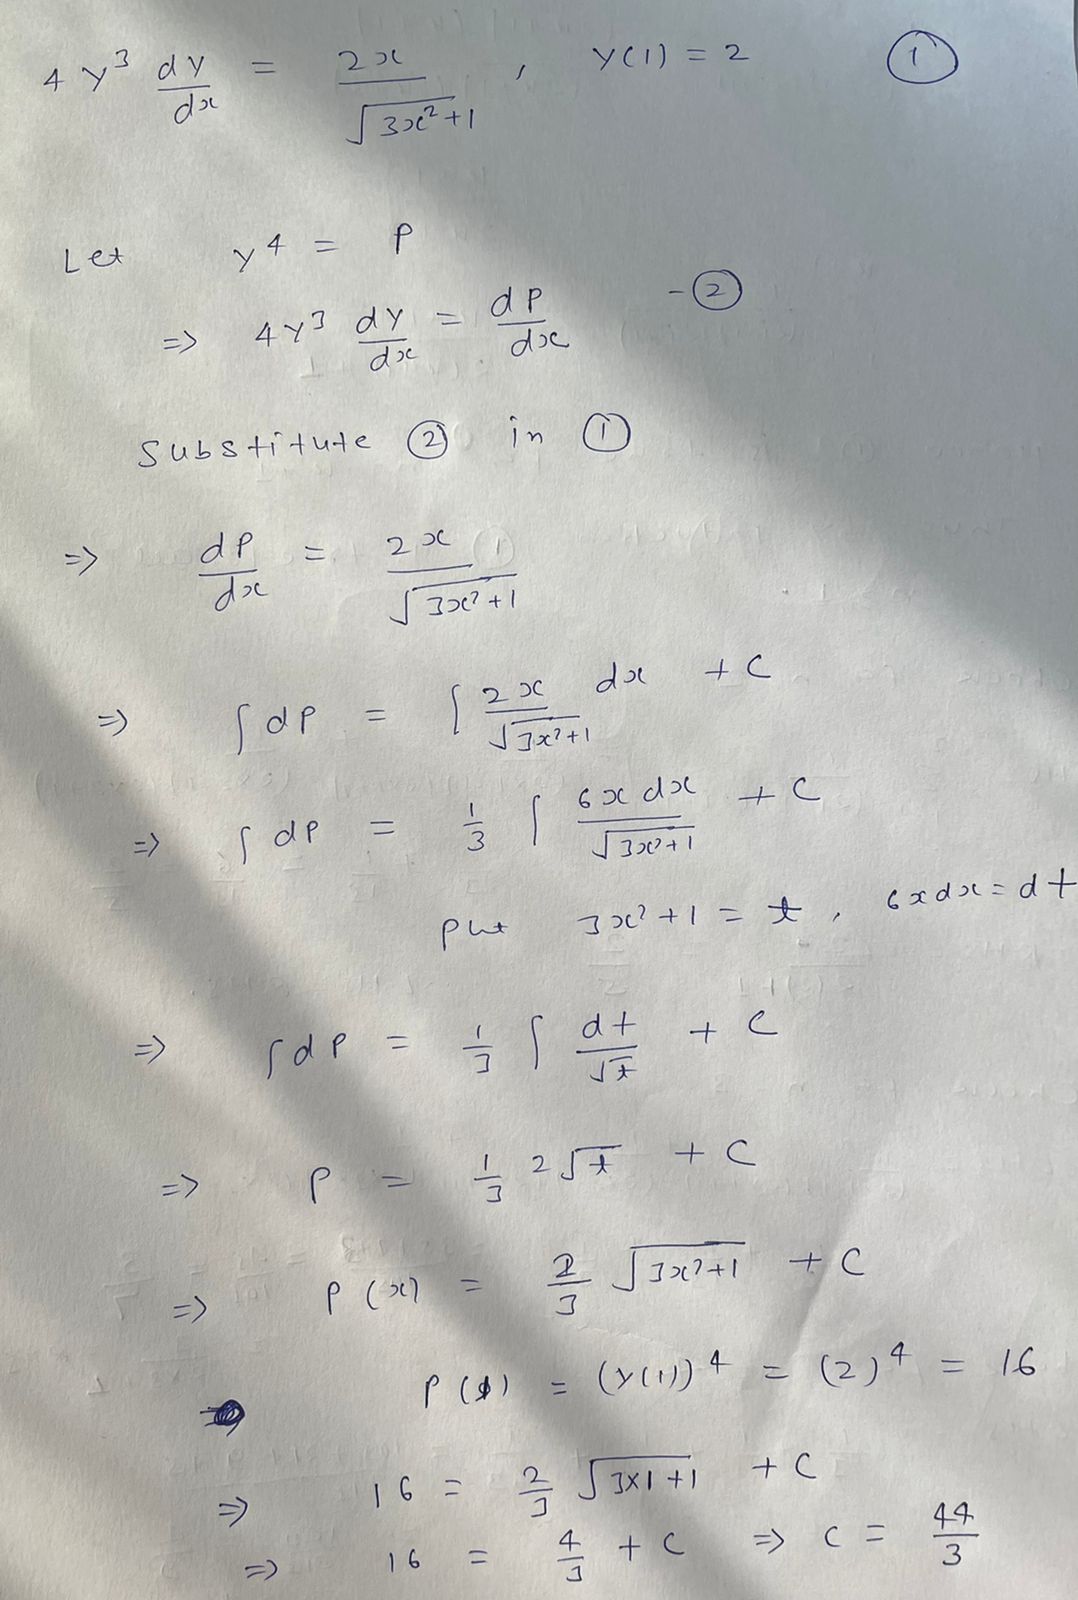 4 y³ dy/dx = 2x/√(3x²+1) , y(1) = 2 ①
Let y⁴ = P
=> 4y³ dy/dx = dP/dx - ②
Substitute ② in ①
=> dP/dx = 2x/√(3x²+1)
=> ∫ dP = ∫ 2x/√(3x²+1) dx + C
=> ∫ dP = 1/3 ∫ 6x dx/√(3x²+1) + C
put 3x²+1 = t , 6xdx = dt
=> ∫dP = 1/3 ∫ dt/√t + C
=> P = 1/3 2√t + C
=> P(x) = 2/3 √(3x²+1) + C
P(1) = (y(1))⁴ = (2)⁴ = 16
=> 16 = 2/3 √(3×1+1) + C
=> 16 = 4/3 + C => C = 44/3